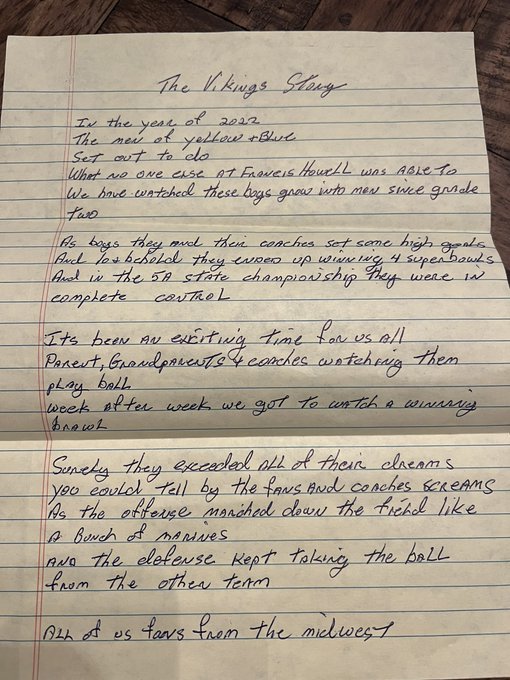 The Vikings Story
In the year of 2022
The men of yellow + Blue
Set out to do
What no one else at Francis Howell was able to
We have watched these boys grow into men since grade
two
As boys they and their coaches set some high goals
And lo + behold they ended up winning 4 superbowls
And in the 5A state championship they were in
complete control
Its been an exciting time for us all
Parent, Grandparents & coaches watching them
play ball
week after week we got to watch a winning
brawl
Surely they exceeded all of their dreams
you could tell by the fans and coaches screams
As the offense marched down the field like
a Bunch of marines
and the defense kept taking the ball
from the other team
All of us fans from the midwest